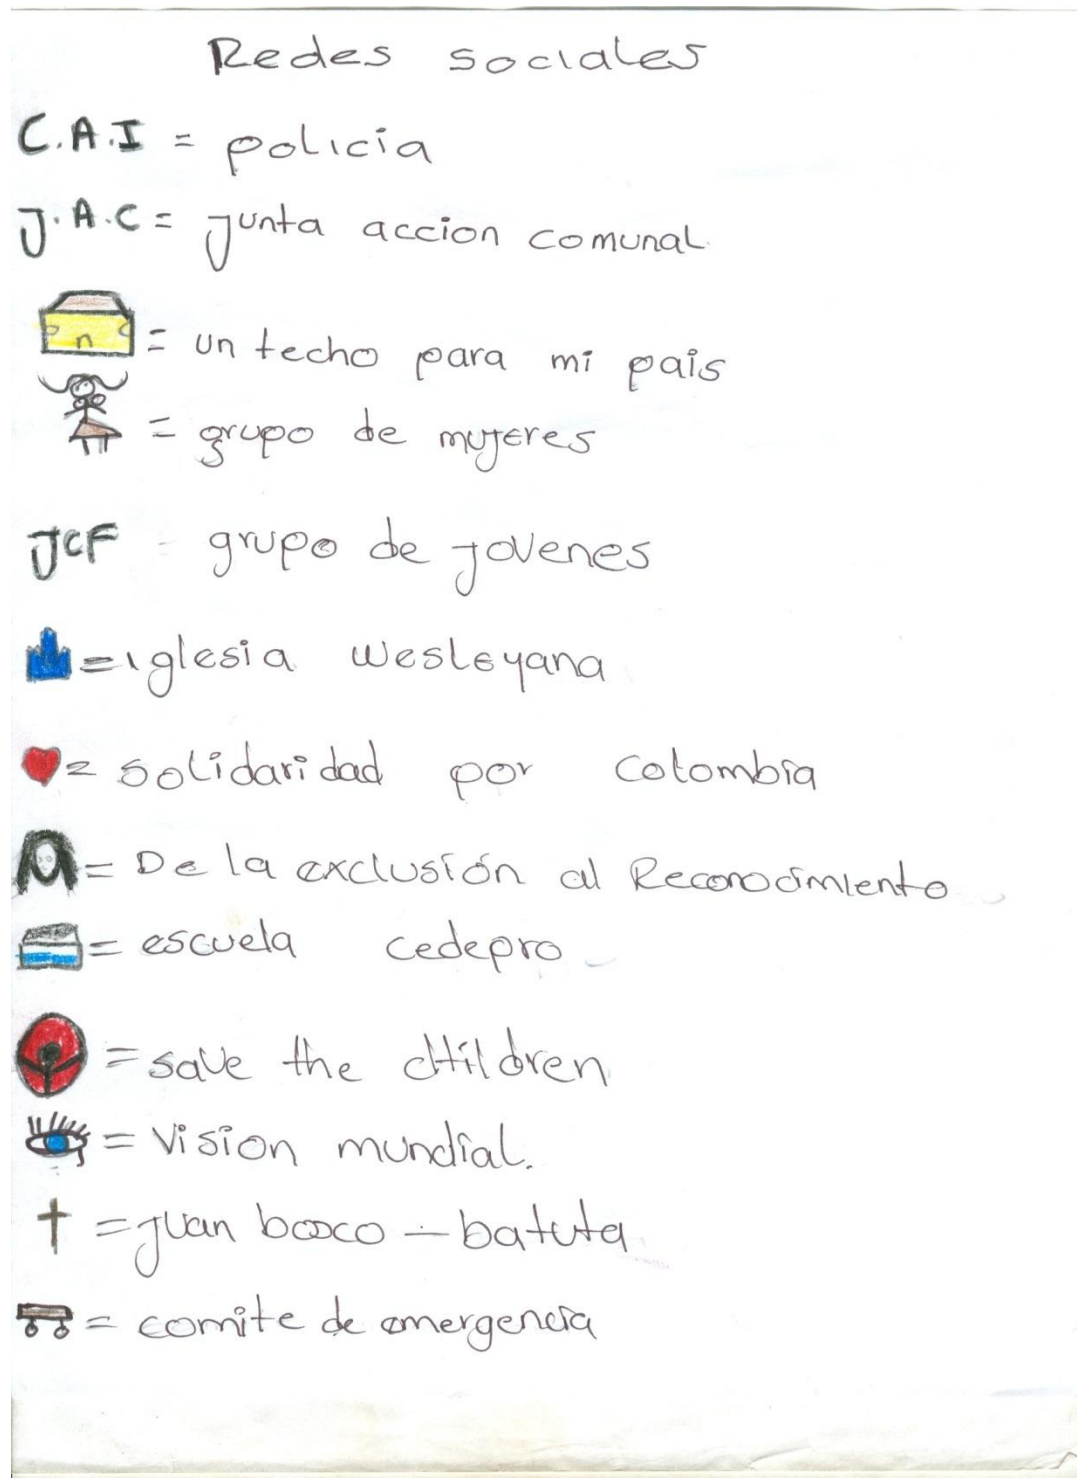 Redes sociales
C.A.I = policía
J.A.C = Junta accion comunal
= un techo para mi pais
= grupo de mujeres
JCF - grupo de jovenes
= iglesia wesleyana
= solidaridad por colombia
= De la exclusión al Reconocimiento
= escuela cedepro
= save the children
= Vision mundial.
= juan bosco - batuta
= comite de emergencia